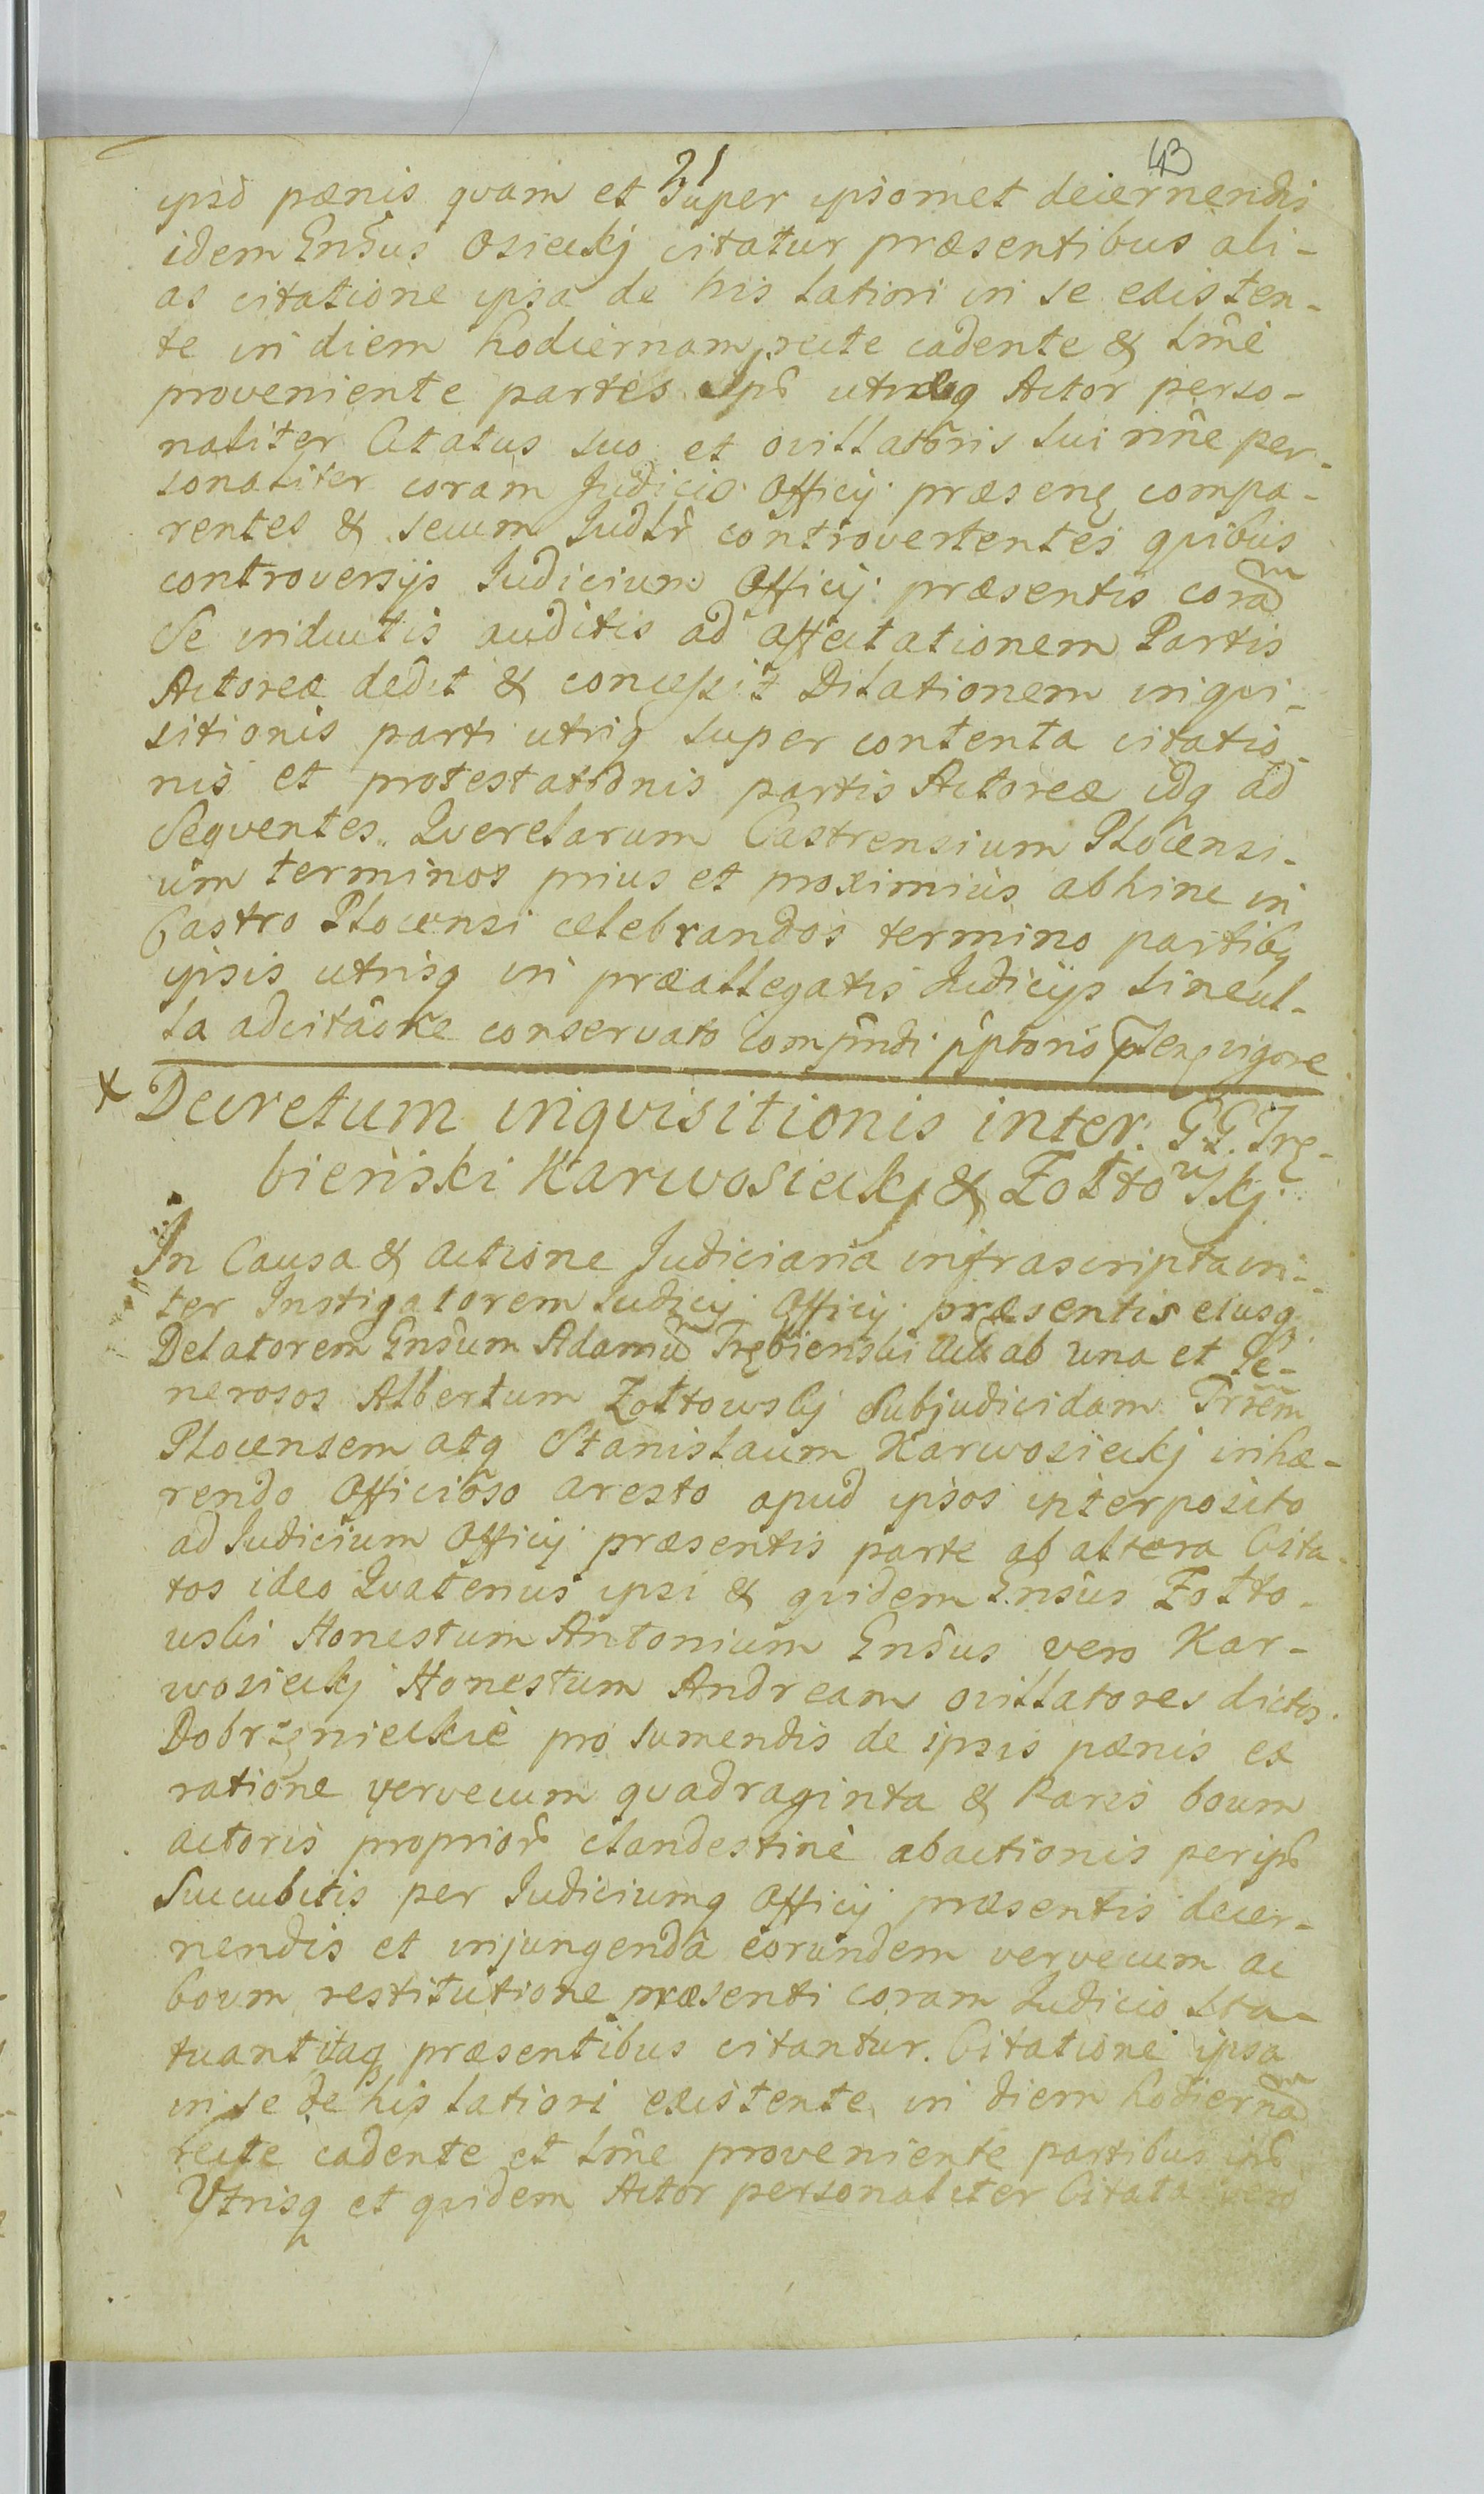 21
43
ipso pœnis qvam et Super ipsomet decernendis
idem Gnsus Osieckj citatur præsentibus ali-
as citatione ipsa de his latiori in se existen-
te in diem hodiernam recte cadente & lm̃e
proveniente partes ips̃ utræq Actor perso-
naliter Citatus suo et ovillatoris sui nñe per-
sonaliter coram Judicio Officij præsenẽ compa-
rentes & secum Judl̃r controvertentes qvibus
controversijs Judicium Officij præsentis coram
Se inductis auditis ad affectationem Partis
Actoreæ dedit & concessit Dilationem inqvi-
sitionis parti utriq super contenta citatio-
nis et protestationis partis Actoreæ idq ad
Seqventes Qverelarum Castrensium Plocensi-
um terminos prius et proximius abhinc in
Castro Plocensi celebrandos termino partibq
ipsis utrisq in præallegatis Judicijs sineul-
la adcitaõne conservato vigore
x Decretum inqvisitionis inter: G.G. Trę-
bienski Karwosieckj & Zołtowskj.
In Causa & actione Judiciaria infrascripta in-
ter Instigatorem Judicij Officij præsentis eiusq
Delatorem Gnsum Adamum Trębienski Act ab una et Ge-
nerosos Albertum Zołtowskj Subjudicidam Trr̃em
Plocensem atq Stanislaum Karwosieckj inhæ-
rendo Officioso aresto apud ipsos interposito
ad Judicium Officij præsentis parte ab altera Cita-
tos ideo Qvatenus ipsi & qvidem Gnsus Zołto-
wski Honestum Antonium Gnsus vero Kar-
wosieckj Honestum Andream ovillatores dictos
Dobrznieckie pro sumendis de ipsis pœnis ex
ratione vervecum qvadraginta & Paris boum
actoris proprior̃ clandestinè abactionis per ips̃
Succubitis per Judiciumq Officij præsentis decer-
nendis et injungenda eorundem vervecum ac
boum restitutione præsenti coram Judicio sta-
tuant itaq præsentibus citantur. Citatione ipsa
in se de his latiori existente in diem hodiernam
recte cadente et lm̃e proveniente partibus ips̃
Vtrisq et qvidem Actor personaliter Citati vero